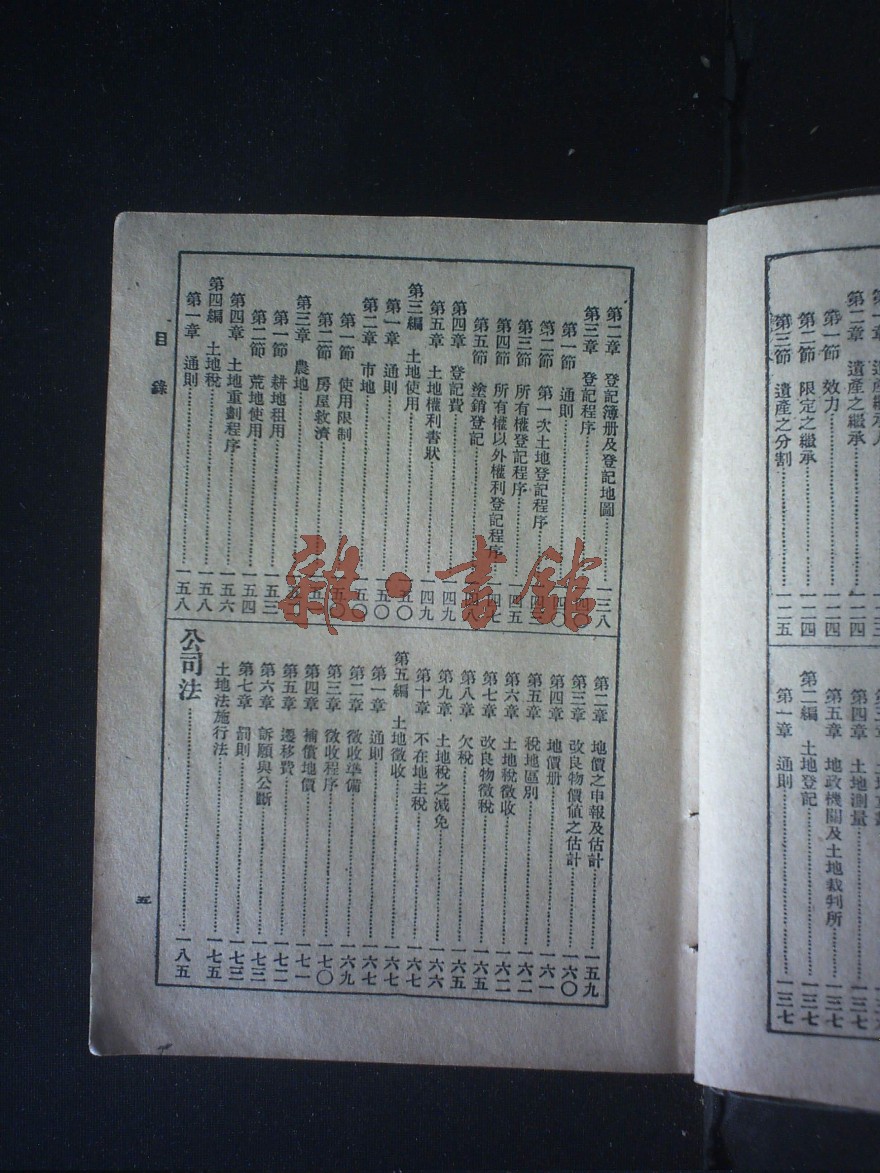 第二章 遺產之繼承……一二四
第一節 效力……一二四
第二節 限定之繼承……一二四
第三節 遺產之分割……一二五
第四章 土地測量……一三七
第五章 地政機關及土地裁判所……一三七
第二編 土地登記……一三七
第一章 通則……一三七
第二章 登記簿册及登記地圖……一三八
第三章 登記程序……一四〇
第一節 通則……一四〇
第二節 第一次土地登記程序……一四三
第三節 所有權登記程序……一四五
第四節 所有權以外權利登記程序……一四七
第五節 塗銷登記……一四八
第四章 登記費……一四九
第五章 土地權利書狀……一四九
第三編 土地使用……一五〇
第一章 通則……一五〇
第二章 市地……一五〇
第一節 使用限制……一五〇
第二節 房屋救濟……
第三章 農地……
第一節 耕地租用……一五三
第二節 荒地使用……一五四
第四章 土地重劃程序……一五六
第四編 土地稅……一五八
第一章 通則……一五八
第二章 地價之申報及估計……一五九
第三章 改良物價值之估計……一六〇
第四章 地價册……一六一
第五章 稅地區別……一六二
第六章 土地稅徵收……一六二
第七章 改良物徵稅……一六五
第八章 欠稅……一六五
第九章 土地稅之減免……一六六
第十章 不在地主稅……一六七
第五編 土地徵收……一六七
第一章 通則……一六七
第二章 徵收準備……一六九
第三章 徵收程序……一七〇
第四章 補償地價……一七一
第五章 遷移費……一七二
第六章 訴願與公斷……一七三
第七章 罰則……一七三
土地法施行法……一七五
公司法……一八五
目錄
五
雜·書館